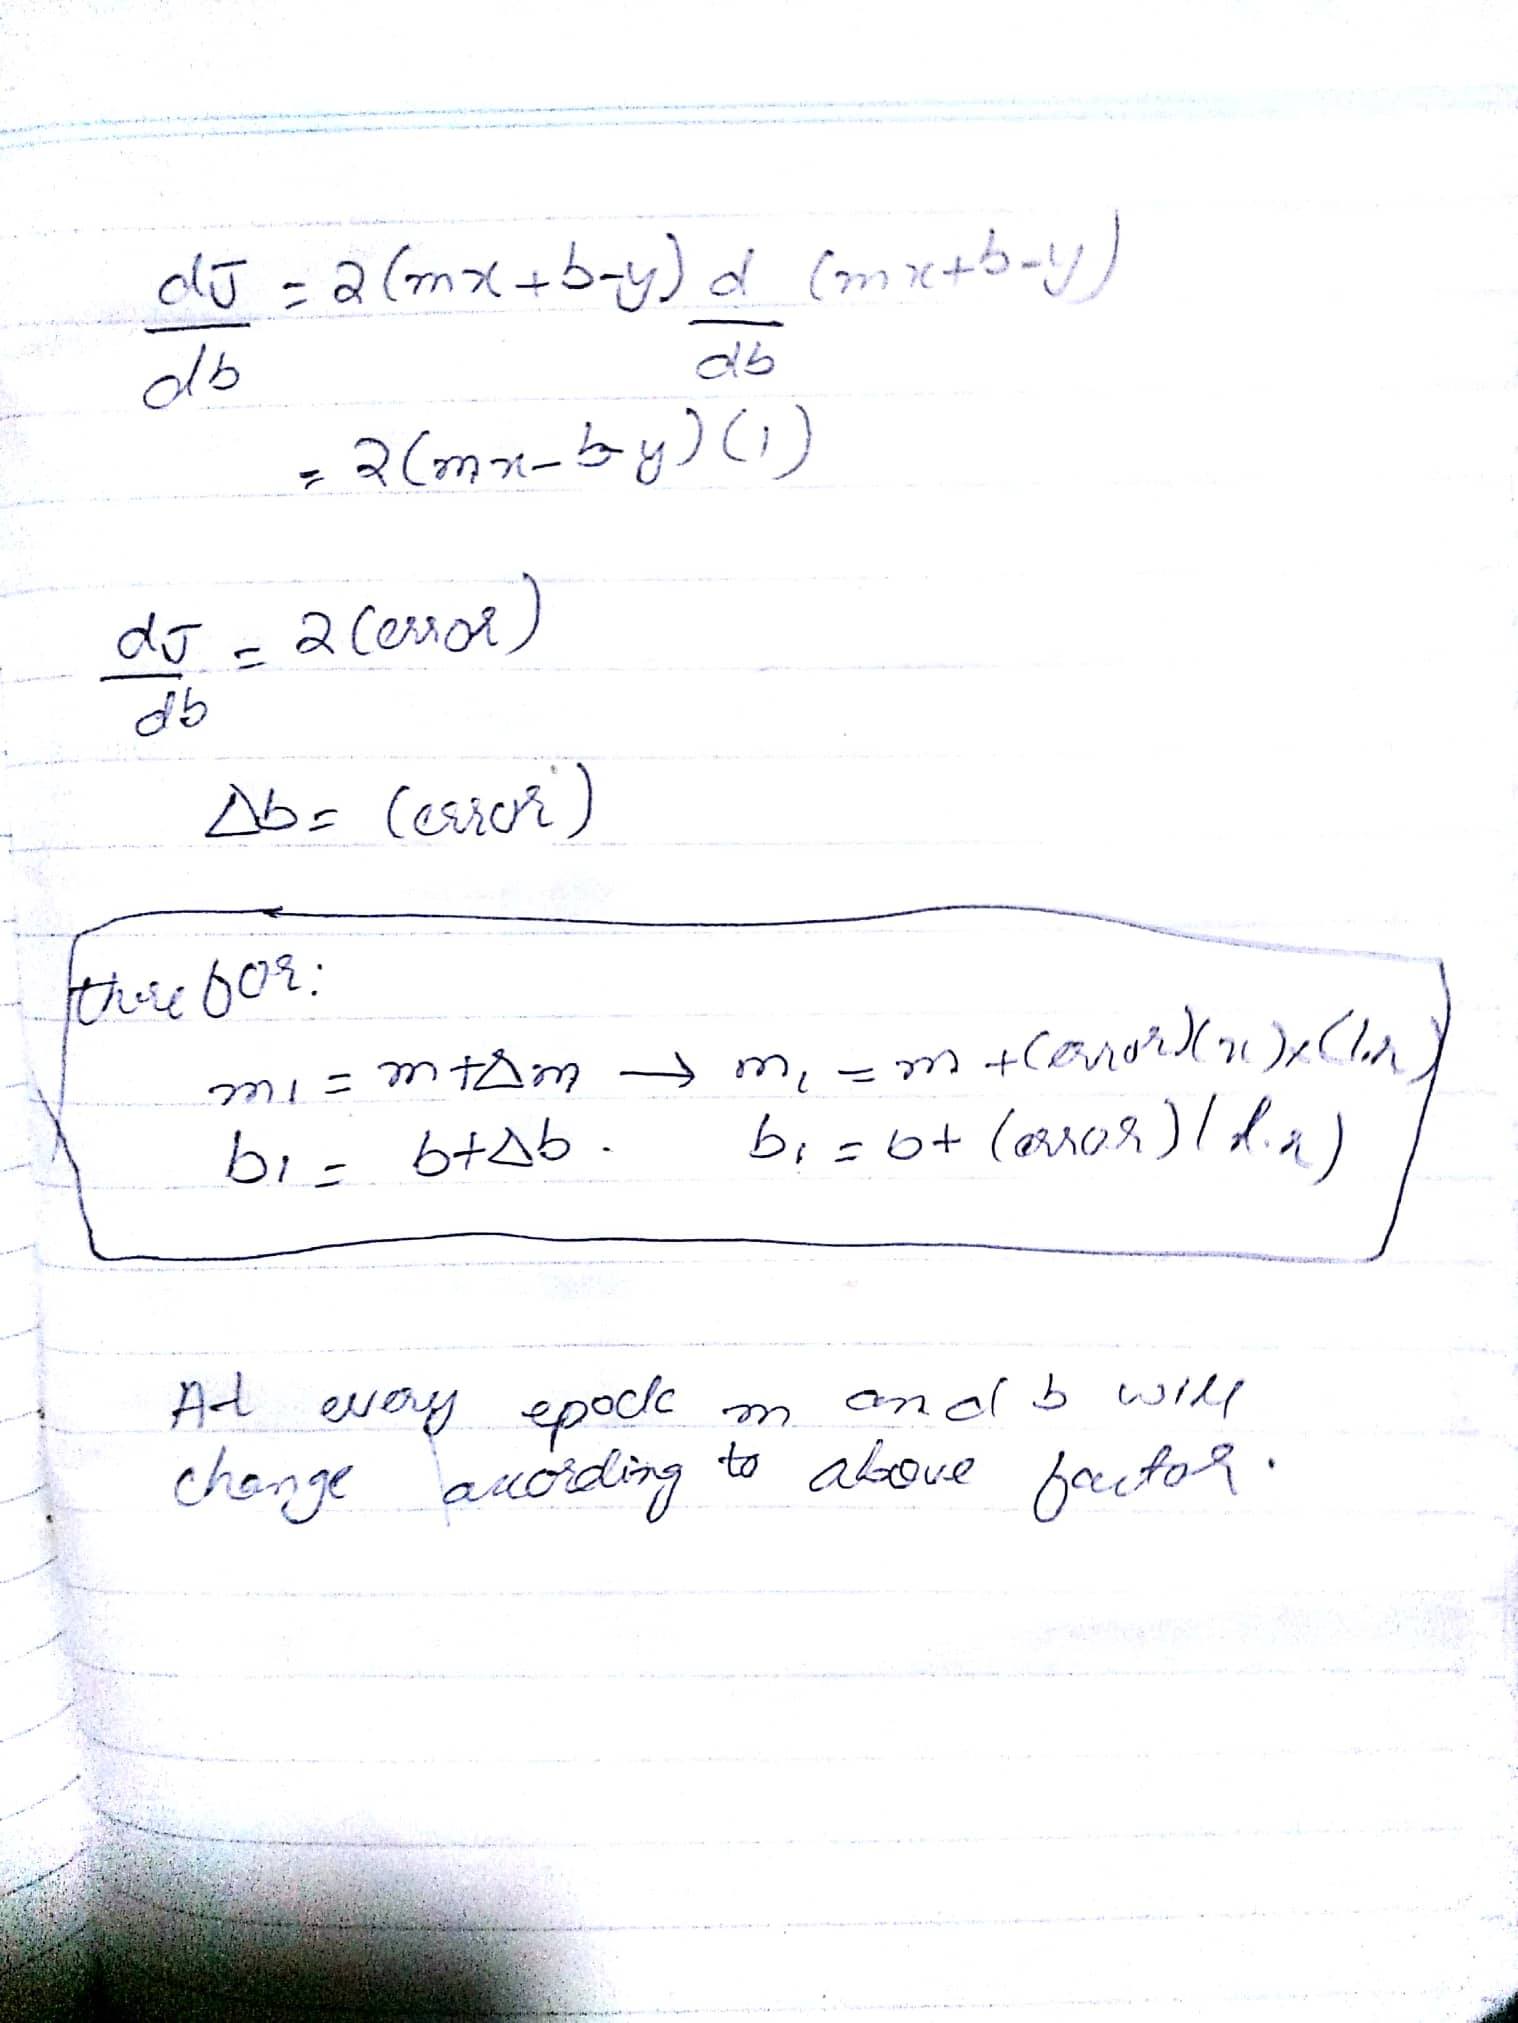 dJ/db = 2(mx+b-y) d/db (mx+b-y)
= 2(mx-b-y)(1)
dJ/db = 2(error)
Δb = (error)
therefor:
m1 = m+Δm → m1 = m+(error)(x)x(l.r)
b1 = b+Δb. b1 = b+(error)(l.r)
At every epock m and b will
change according to above factor.